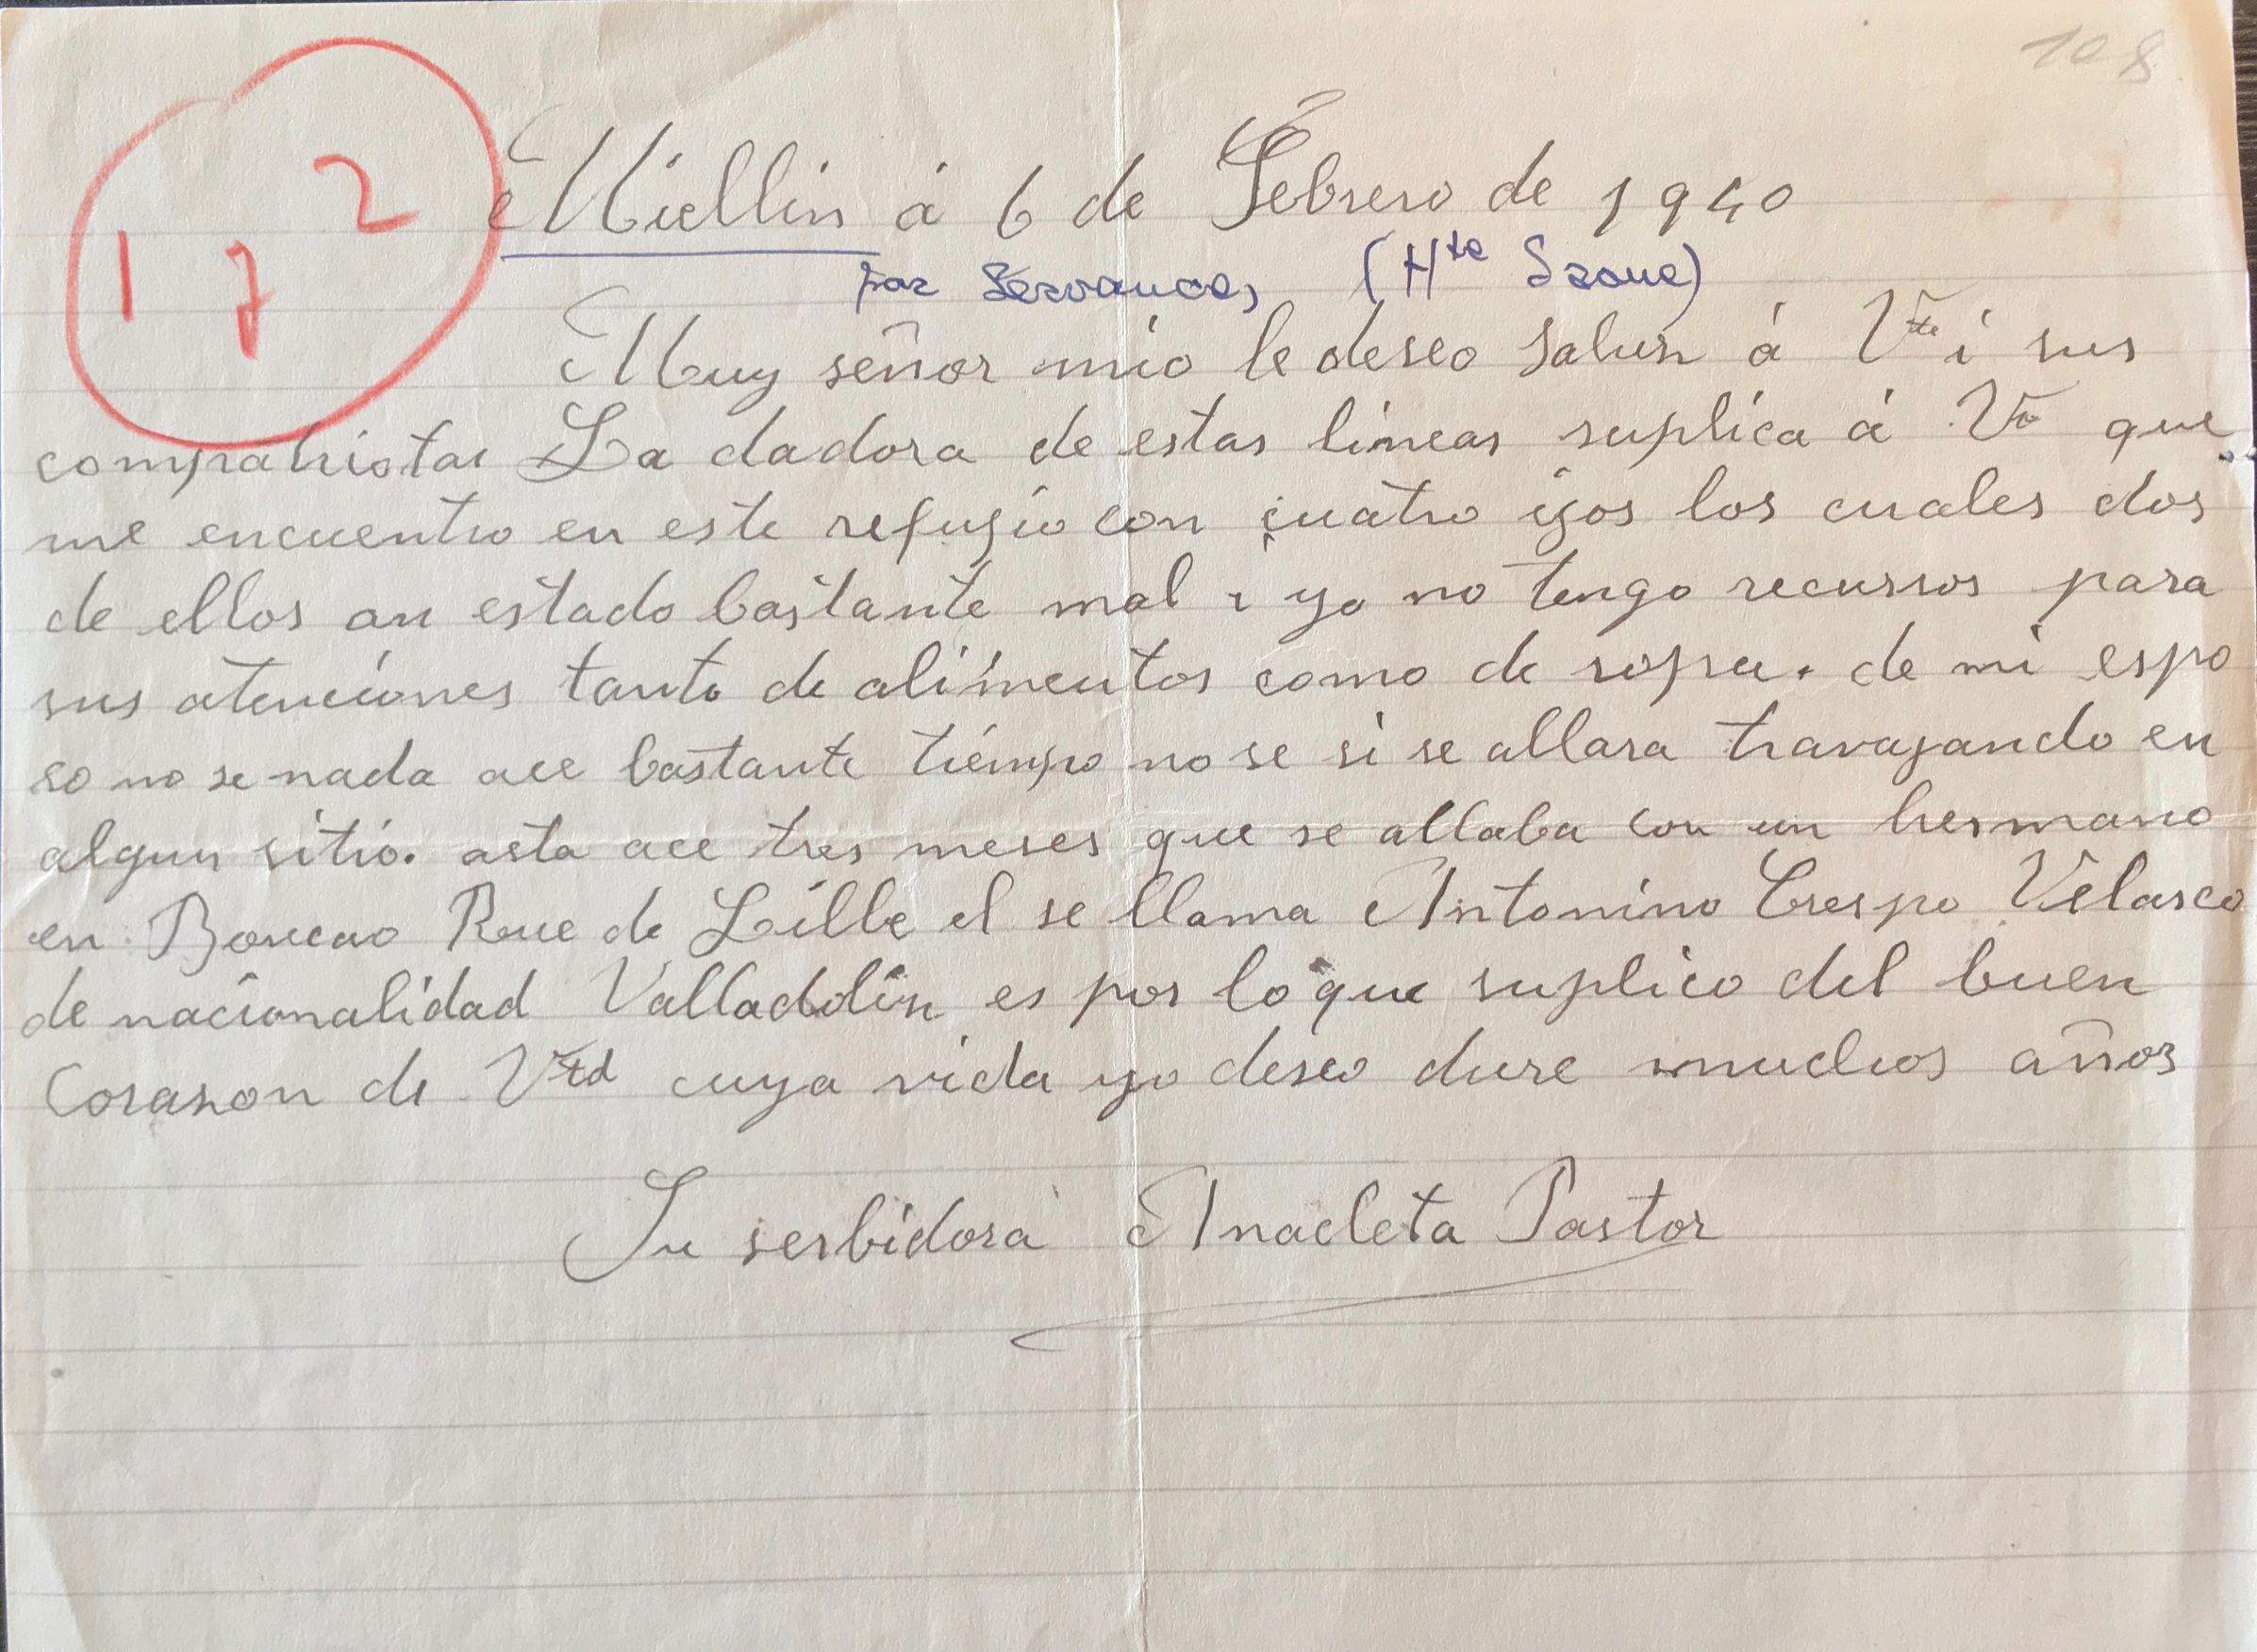 108
172
Miellin á 6 de Febrero de 1940
par Servance, (Hte Saone)
Muy señor mio le deseo salun á Vte i sus
compatriotas La dadora de estas lineas suplica á Vd que
me encuentro en este refugio con cuatro ijos los cuales dos
de ellos an estado bastante mal i yo no tengo recursos para
sus atenciones tanto de alimentos como de ropa. de mi espo
so no se nada ace bastante tiempo no se si se allara travajando en
algun sitio. asta ace tres meses que se allaba con un hermano
en Rue de Lille el se llama Antonino Crespo Velasco
de nacionalidad Valladolin es por lo que suplico del buen
Corason de Vtd cuya vida yo deseo dure muchos años
Su serbidora Anacleta Pastor